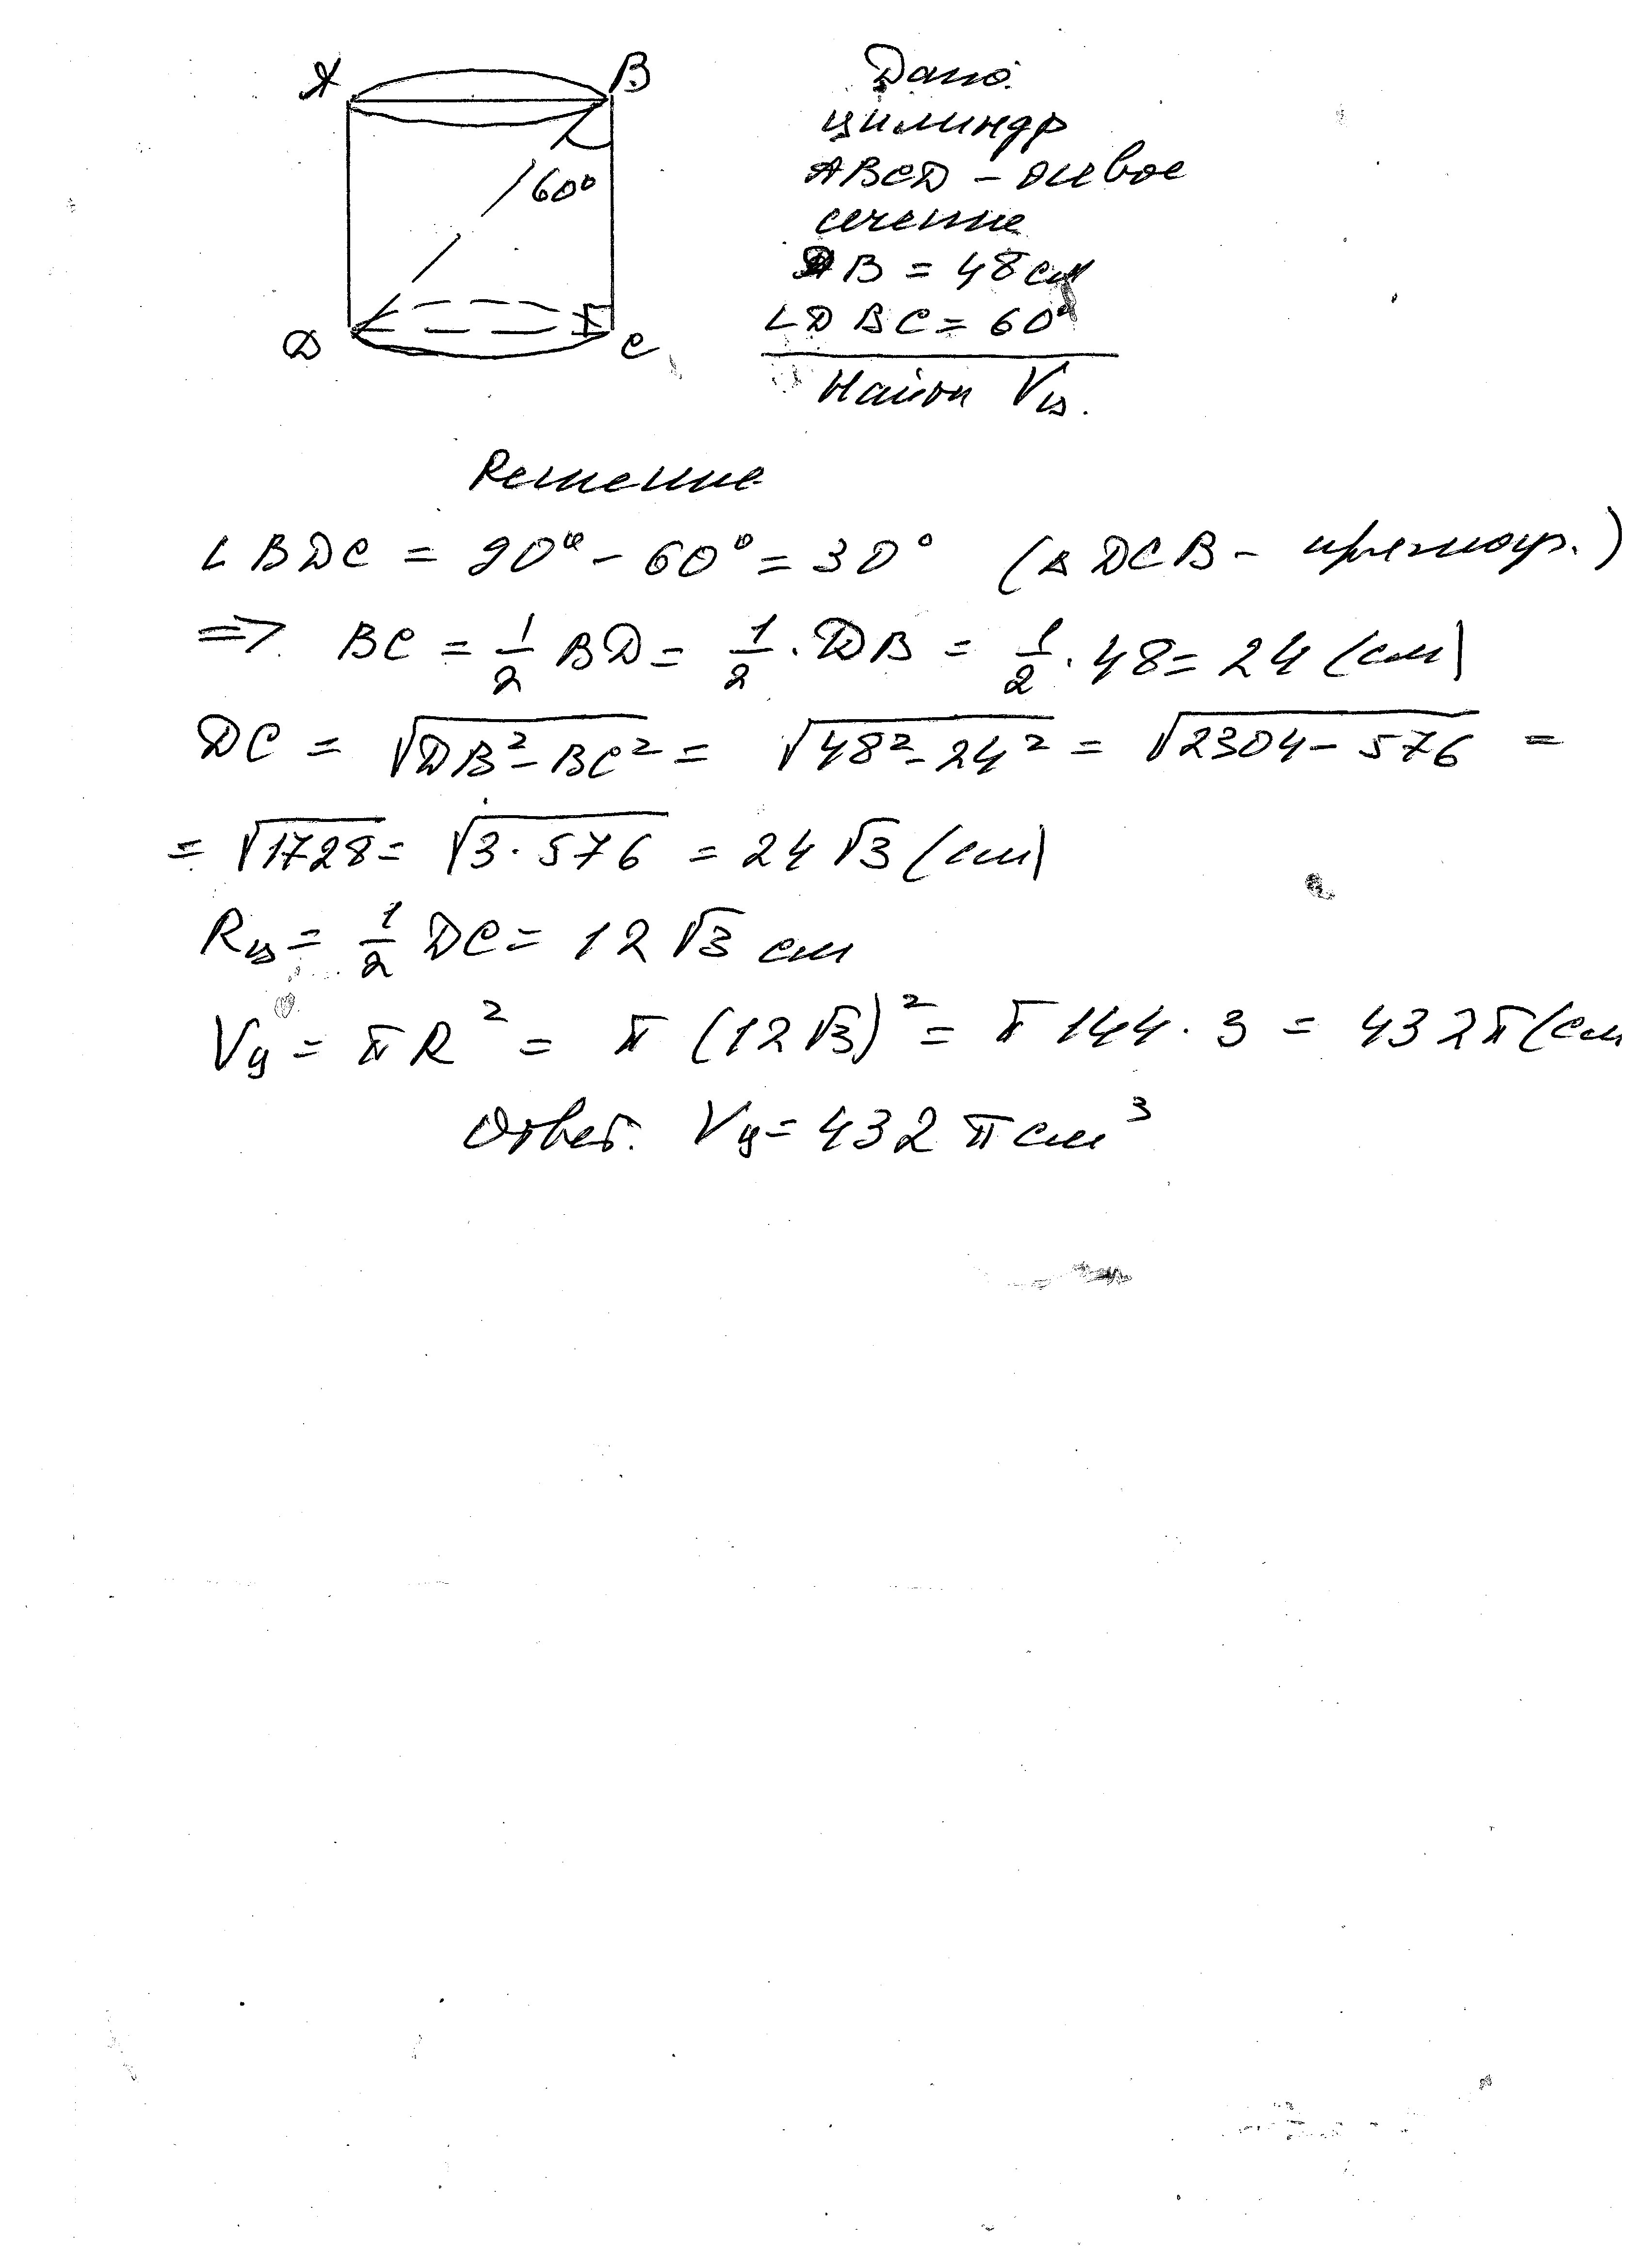 A B
Дано:
цилиндр
ABCD – осевое
сечение
60°
DB = 48 см
∠DBC = 60°
D C
Найти Vц.
Решение
∠BDC = 90° – 60° = 30° (Δ DCB – прямоуг.)
=> BC = 1/2 BD = 1/2 · DB = 1/2 · 48 = 24 (см)
DC = √(DB² – BC²) = √(48² – 24²) = √(2304 – 576) =
= √1728 = √(3 · 576) = 24√3 (см)
Rц = 1/2 DC = 12√3 см
Vц = πR² = π (12√3)² = π 144 · 3 = 432π (см
Ответ. Vц = 432 π см³